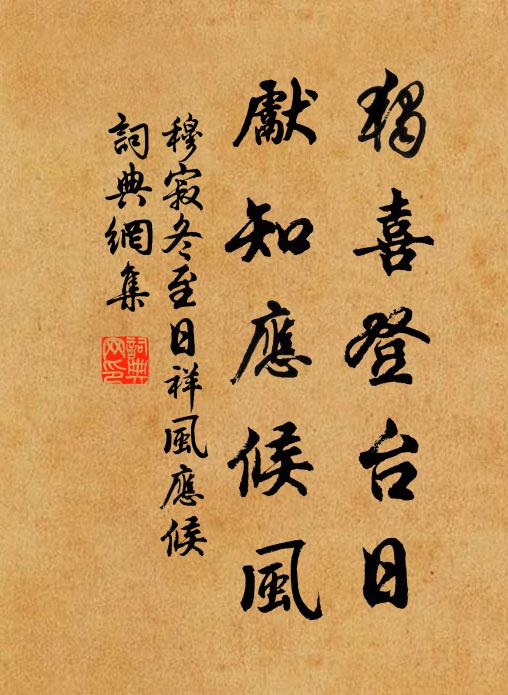 獨喜登台日
獻知應候風
穆寂冬至日祥風應候
詞典網集
詞典
网印